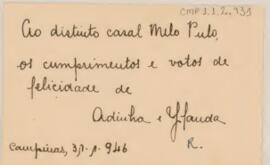 CMP 1.1.2.931
Ao distinto casal Melo Pulo,
os cumprimentos e votos de
felicidade de
Adinha e Yfanda
R.
Campinas, 31-1-946